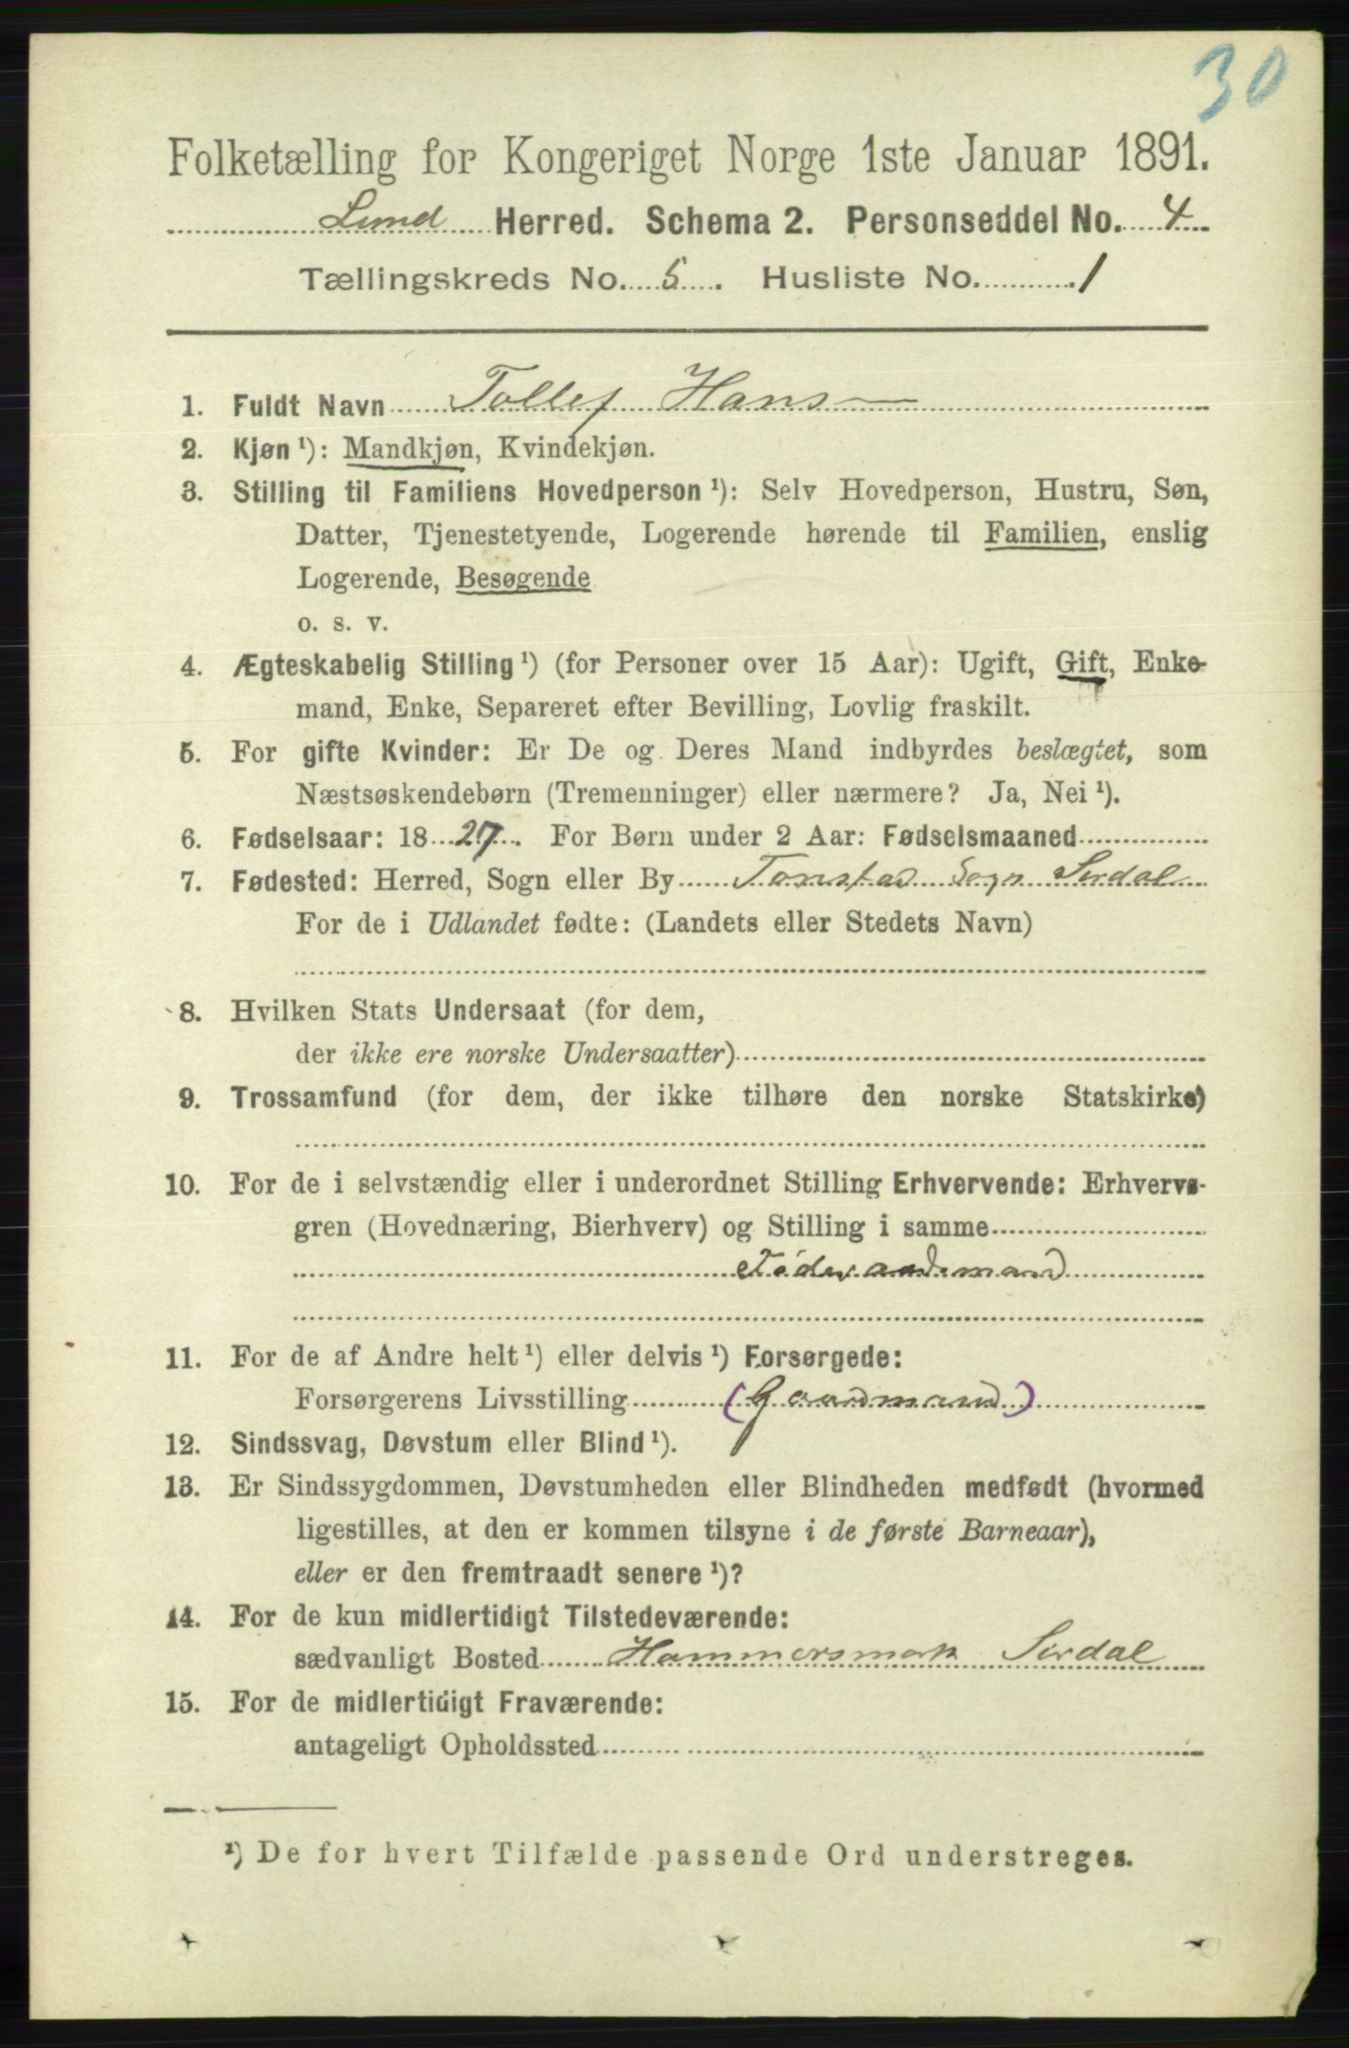 30
Folketælling for Kongeriget Norge 1ste Januar 1891.
Lund Herred. Schema 2. Personseddel No. 4
Tællingskreds No. 5. Husliste No. 1
1. Fuldt Navn Tollef Hans
2. Kjøn ¹): Mandkjøn, Kvindekjøn.
3. Stilling til Familiens Hovedperson ¹): Selv Hovedperson, Hustru, Søn,
Datter, Tjenestetyende, Logerende hørende til Familien, enslig
Logerende, Besøgende
o. s. v.
4. Ægteskabelig Stilling ¹) (for Personer over 15 Aar): Ugift, Gift, Enke-
mand, Enke, Separeret efter Bevilling, Lovlig fraskilt.
5. For gifte Kvinder: Er De og Deres Mand indbyrdes beslægtet, som
Næstsøskendebørn (Tremenninger) eller nærmere? Ja, Nei ¹).
6. Fødselsaar: 1827. For Børn under 2 Aar: Fødselsmaaned
7. Fødested: Herred, Sogn eller By Tonstad Sogn Sirdal
For de i Udlandet fødte: (Landets eller Stedets Navn)
8. Hvilken Stats Undersaat (for dem,
der ikke ere norske Undersaatter)
9. Trossamfund (for dem, der ikke tilhøre den norske Statskirke)
10. For de i selvstændig eller i underordnet Stilling Erhvervende: Erhvervs-
gren (Hovednæring, Bierhverv) og Stilling i samme
Føderaadsmand
11. For de af Andre helt ¹) eller delvis ¹) Forsørgede:
Forsørgerens Livsstilling (Gaardmand)
12. Sindssvag, Døvstum eller Blind ¹).
13. Er Sindssygdommen, Døvstumheden eller Blindheden medfødt (hvormed
ligestilles, at den er kommen tilsyne i de første Barneaar),
eller er den fremtraadt senere ¹)?
14. For de kun midlertidigt Tilstedeværende:
sædvanligt Bosted Hammersmark Sirdal
15. For de midlertidigt Fraværende:
antageligt Opholdssted
¹) De for hvert Tilfælde passende Ord understreges.